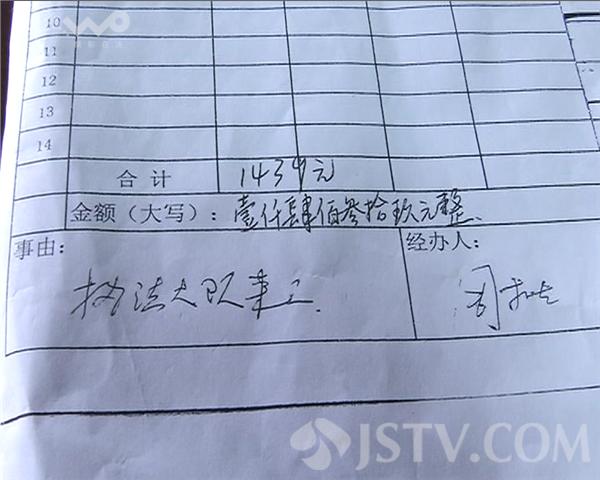 10
11
12
13
14
合计 1439元
金额（大写）： 壹仟肆佰叁拾玖元整
事由： 经办人：
执法大队
JSTV.COM